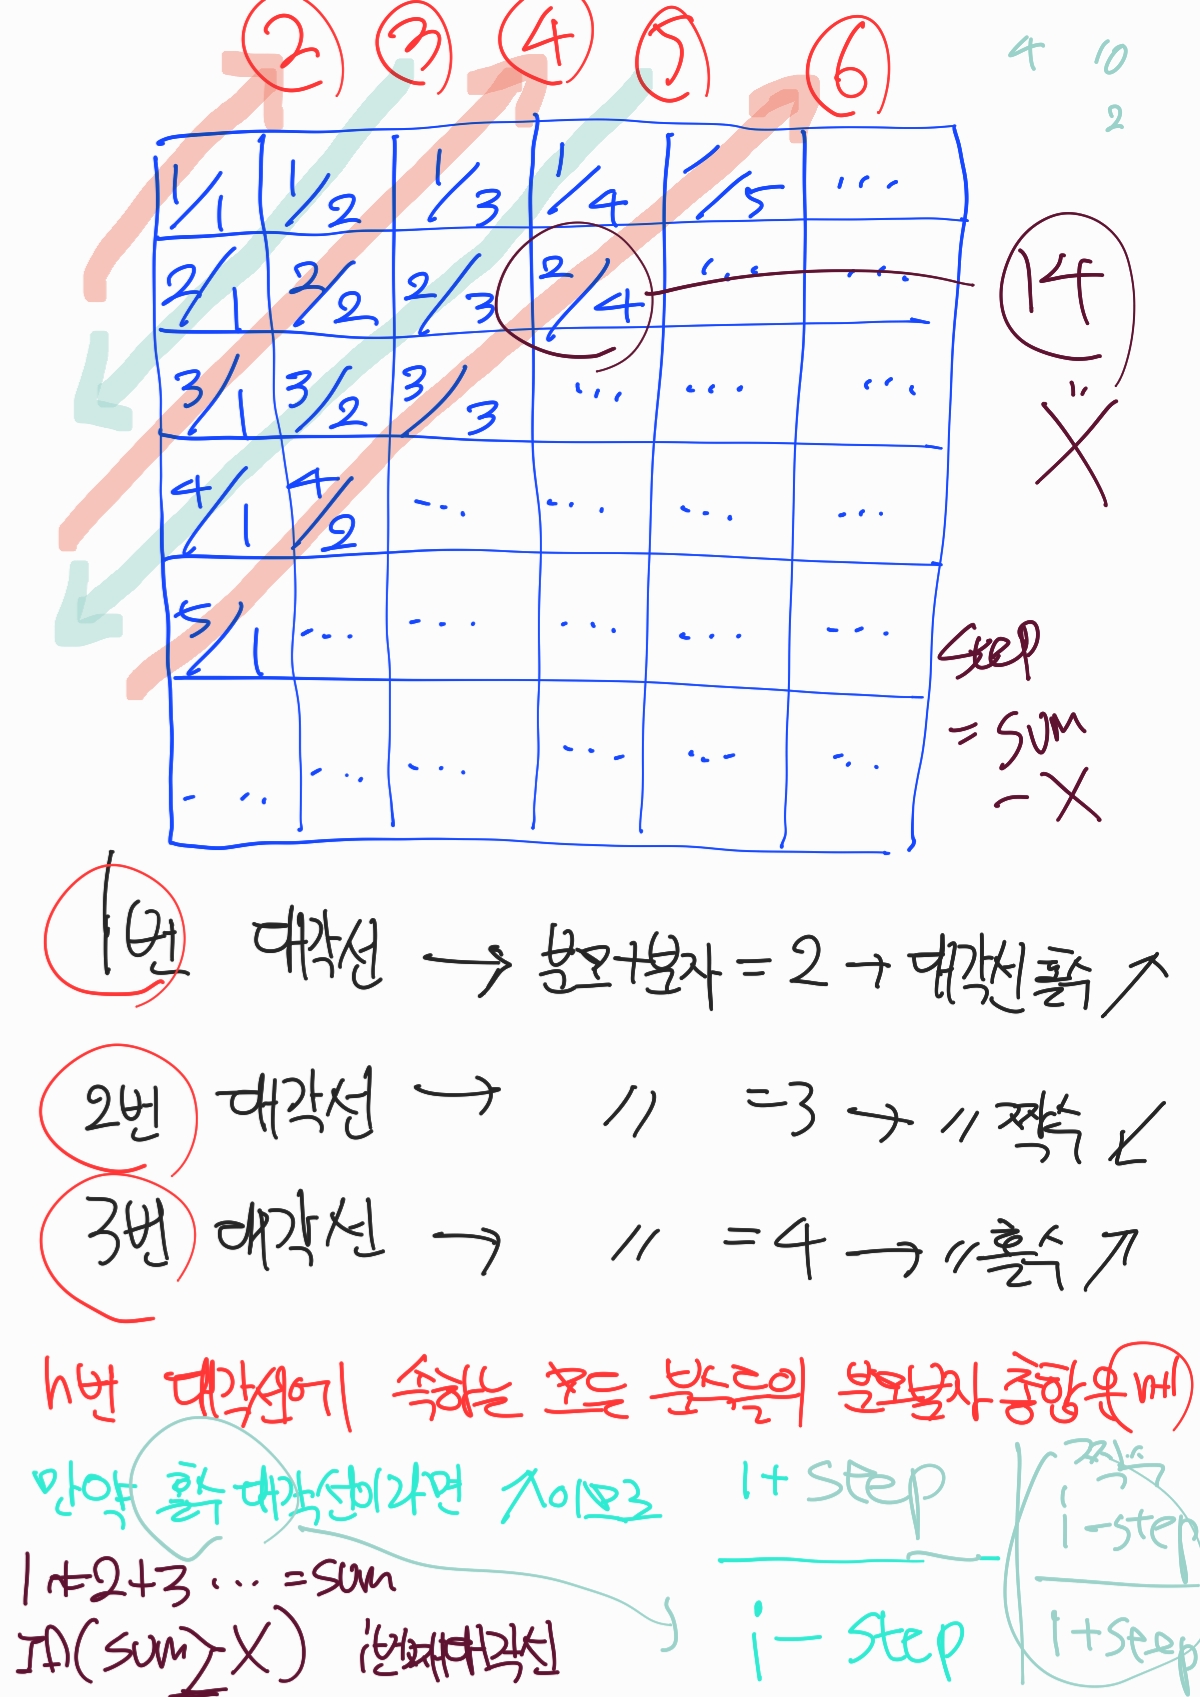 ② ③ ④ ⑤ ⑥ 4 10
2
1/1 1/2 1/3 1/4 1/5 ...
2/1 2/2 2/3 2/4 ... ... 14
3/1 3/2 3/3 ... ... ...
X
4/1 4/2 ... ... ... ...
5/1 ... ... ... ... ...
step
= sum
- X
... ... ... ... ... ...
1번 대각선 → 분모+분자 = 2 → 대각선 홀수 ↗
2번 대각선 → 〃 =3 → 〃 짝수 ↙
3번 대각선 → 〃 =4 → 〃 홀수 ↗
n번 대각선에 속하는 모든 분수들의 분모분자 총합은
만약 홀수 대각선이라면 ↗이므로
1+step
i-step
짝수
i-step
1+step
1+2+3 ... = sum
if(sum ≥ X) i번째 대각선